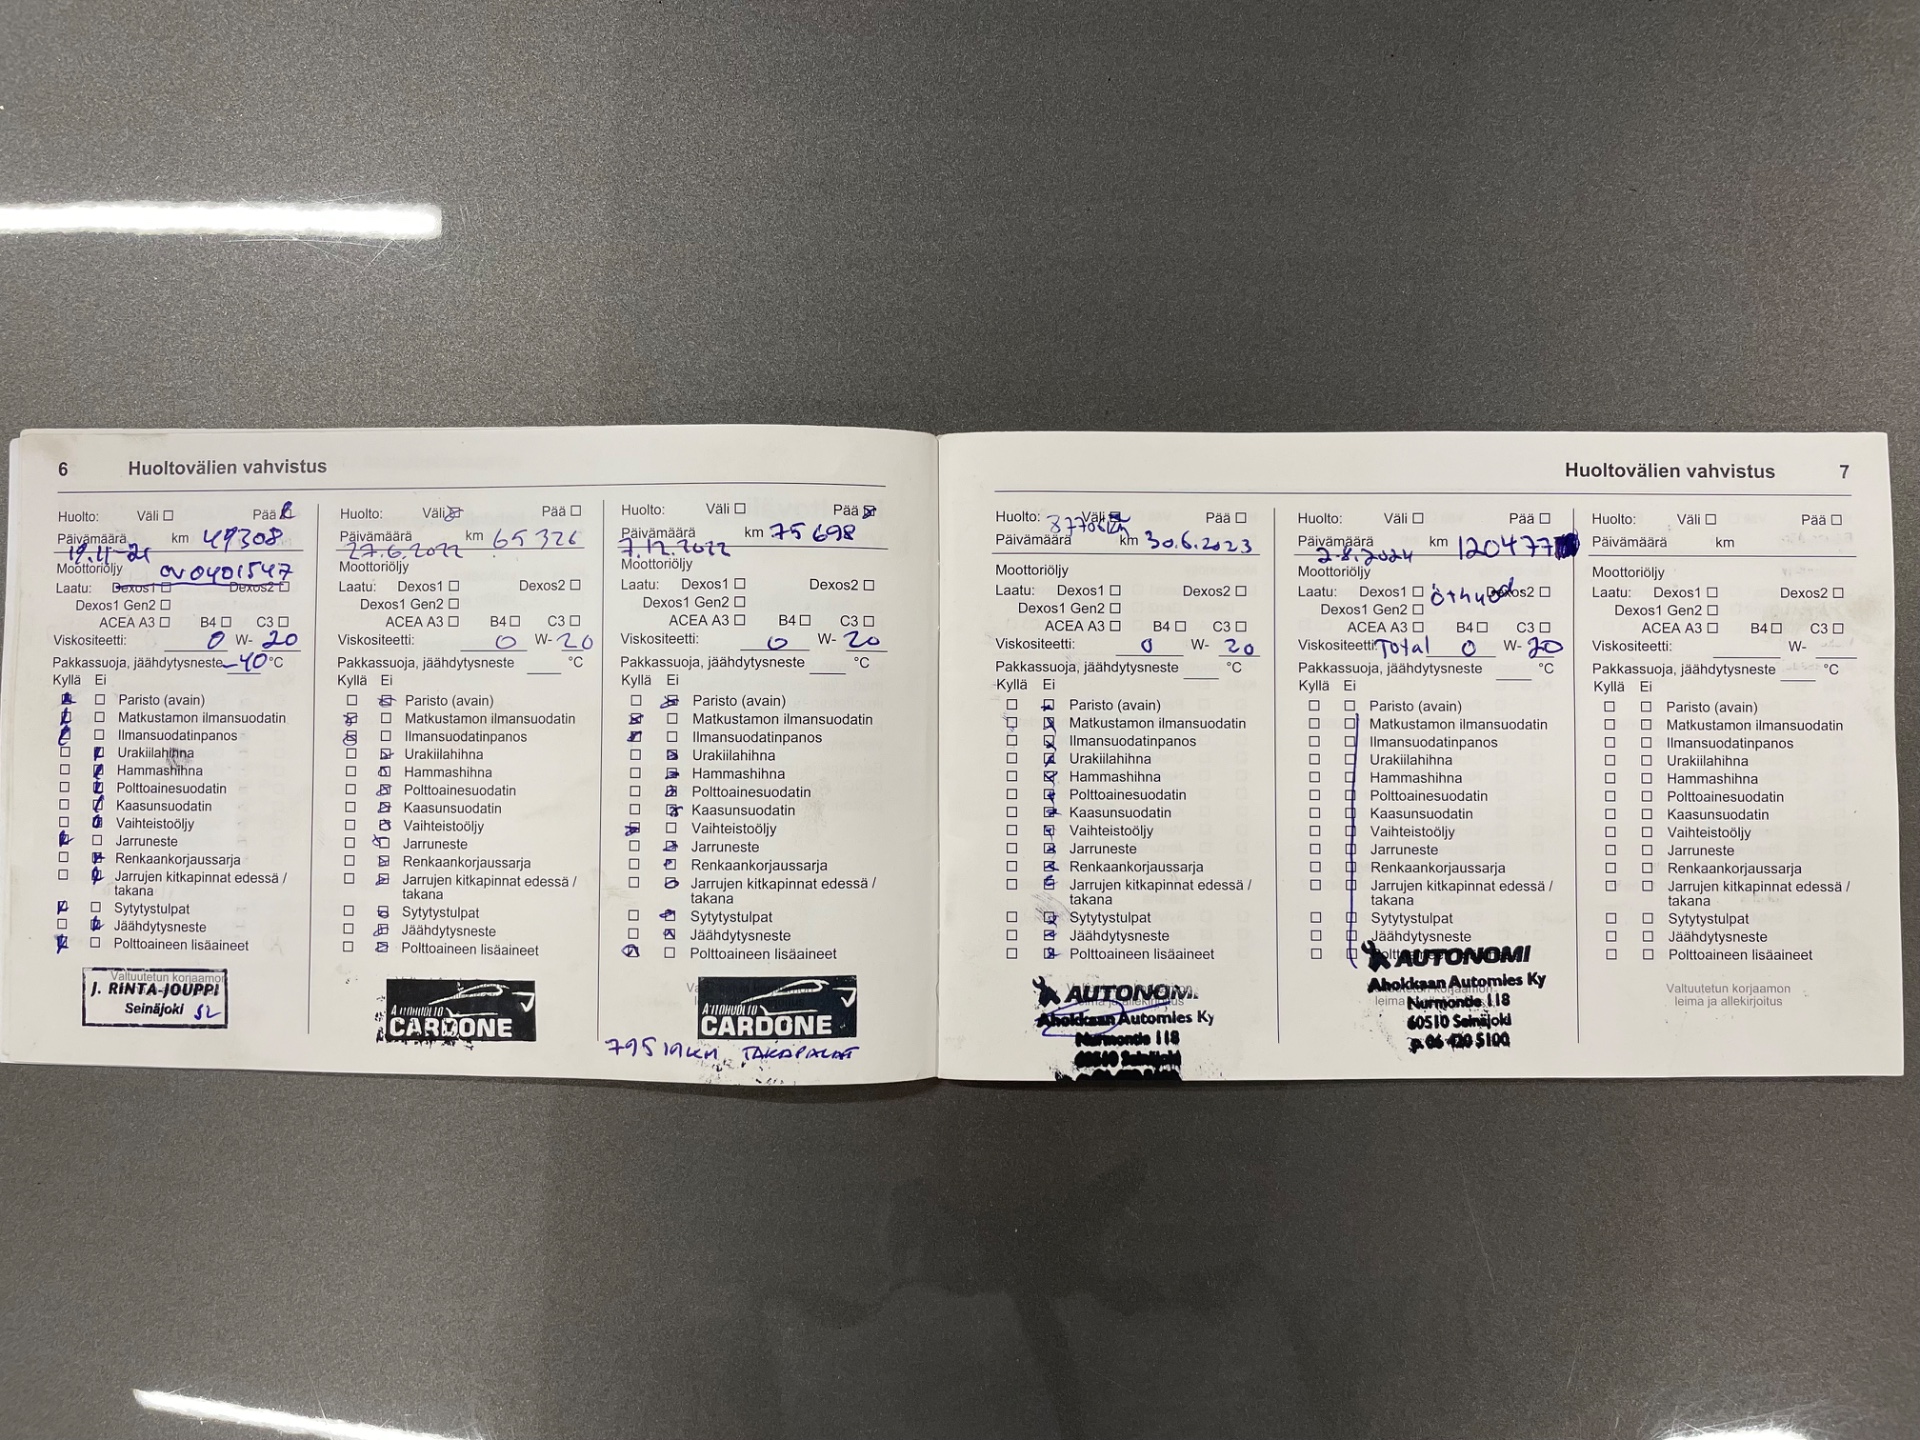 6 Huoltovälien vahvistus
Huolto: Väli ☐ Pää
Päivämäärä km 49308
19.11-21
Moottoriöljy OV0401547
Laatu: Dexos1 ☐ Dexos2 ☐
Dexos1 Gen2 ☐
ACEA A3 ☐ B4 ☐ C3 ☐
Viskositeetti: 0 W- 20
Pakkassuoja, jäähdytysneste -40 °C
Kyllä Ei
Paristo (avain)
Matkustamon ilmansuodatin
Ilmansuodatinpanos
Urakiilahihna
Hammashihna
Polttoainesuodatin
Kaasunsuodatin
Vaihteistoöljy
Jarruneste
Renkaankorjaussarja
Jarrujen kitkapinnat edessä /
takana
Sytytystulpat
Jäähdytysneste
Polttoaineen lisäaineet
Valtuutetun korjaamon
J. RINTA-JOUPPI
Seinäjoki
Huolto: Väli Pää ☐
Päivämäärä km 65326
27.6.2022
Moottoriöljy
Laatu: Dexos1 ☐ Dexos2 ☐
Dexos1 Gen2 ☐
ACEA A3 ☐ B4 ☐ C3 ☐
Viskositeetti: 0 W- 20
Pakkassuoja, jäähdytysneste °C
Kyllä Ei
Paristo (avain)
Matkustamon ilmansuodatin
Ilmansuodatinpanos
Urakiilahihna
Hammashihna
Polttoainesuodatin
Kaasunsuodatin
Vaihteistoöljy
Jarruneste
Renkaankorjaussarja
Jarrujen kitkapinnat edessä /
takana
Sytytystulpat
Jäähdytysneste
Polttoaineen lisäaineet
AUTOHUOLTO
CARDONE
Huolto: Väli ☐ Pää
Päivämäärä km 75698
7.12.2022
Moottoriöljy
Laatu: Dexos1 ☐ Dexos2 ☐
Dexos1 Gen2 ☐
ACEA A3 ☐ B4 ☐ C3 ☐
Viskositeetti: 0 W- 20
Pakkassuoja, jäähdytysneste °C
Kyllä Ei
Paristo (avain)
Matkustamon ilmansuodatin
Ilmansuodatinpanos
Urakiilahihna
Hammashihna
Polttoainesuodatin
Kaasunsuodatin
Vaihteistoöljy
Jarruneste
Renkaankorjaussarja
Jarrujen kitkapinnat edessä /
takana
Sytytystulpat
Jäähdytysneste
Polttoaineen lisäaineet
AUTOHUOLTO
CARDONE
79519KM TAKAPALAT
Huoltovälien vahvistus 7
Huolto: Väli Pää ☐
Päivämäärä km 30.6.2023
Moottoriöljy
Laatu: Dexos1 ☐ Dexos2 ☐
Dexos1 Gen2 ☐
ACEA A3 ☐ B4 ☐ C3 ☐
Viskositeetti: 0 W- 20
Pakkassuoja, jäähdytysneste °C
Kyllä Ei
Paristo (avain)
Matkustamon ilmansuodatin
Ilmansuodatinpanos
Urakiilahihna
Hammashihna
Polttoainesuodatin
Kaasunsuodatin
Vaihteistoöljy
Jarruneste
Renkaankorjaussarja
Jarrujen kitkapinnat edessä /
takana
Sytytystulpat
Jäähdytysneste
Polttoaineen lisäaineet
AUTONOMI
Ahokkaan Automies Ky
Nurmontie 118
60510 Seinäjoki
Huolto: Väli ☐ Pää ☐
Päivämäärä km 120477
2.8.2024
Moottoriöljy
Laatu: Dexos1 ☐ Dexos2 ☐
Dexos1 Gen2 ☐
ACEA A3 ☐ B4 ☐ C3 ☐
Viskositeetti: Total 0 W- 20
Pakkassuoja, jäähdytysneste °C
Kyllä Ei
Paristo (avain)
Matkustamon ilmansuodatin
Ilmansuodatinpanos
Urakiilahihna
Hammashihna
Polttoainesuodatin
Kaasunsuodatin
Vaihteistoöljy
Jarruneste
Renkaankorjaussarja
Jarrujen kitkapinnat edessä /
takana
Sytytystulpat
Jäähdytysneste
AUTONOMI
Ahokkaan Automies Ky
Nurmontie 118
60510 Seinäjoki
p. 06 420 5100
Huolto: Väli ☐ Pää ☐
Päivämäärä km
Moottoriöljy
Laatu: Dexos1 ☐ Dexos2 ☐
Dexos1 Gen2 ☐
ACEA A3 ☐ B4 ☐ C3 ☐
Viskositeetti: W-
Pakkassuoja, jäähdytysneste °C
Kyllä Ei
☐ ☐ Paristo (avain)
☐ ☐ Matkustamon ilmansuodatin
☐ ☐ Ilmansuodatinpanos
☐ ☐ Urakiilahihna
☐ ☐ Hammashihna
☐ ☐ Polttoainesuodatin
☐ ☐ Kaasunsuodatin
☐ ☐ Vaihteistoöljy
☐ ☐ Jarruneste
☐ ☐ Renkaankorjaussarja
☐ ☐ Jarrujen kitkapinnat edessä /
takana
☐ ☐ Sytytystulpat
☐ ☐ Jäähdytysneste
☐ ☐ Polttoaineen lisäaineet
Valtuutetun korjaamon
leima ja allekirjoitus